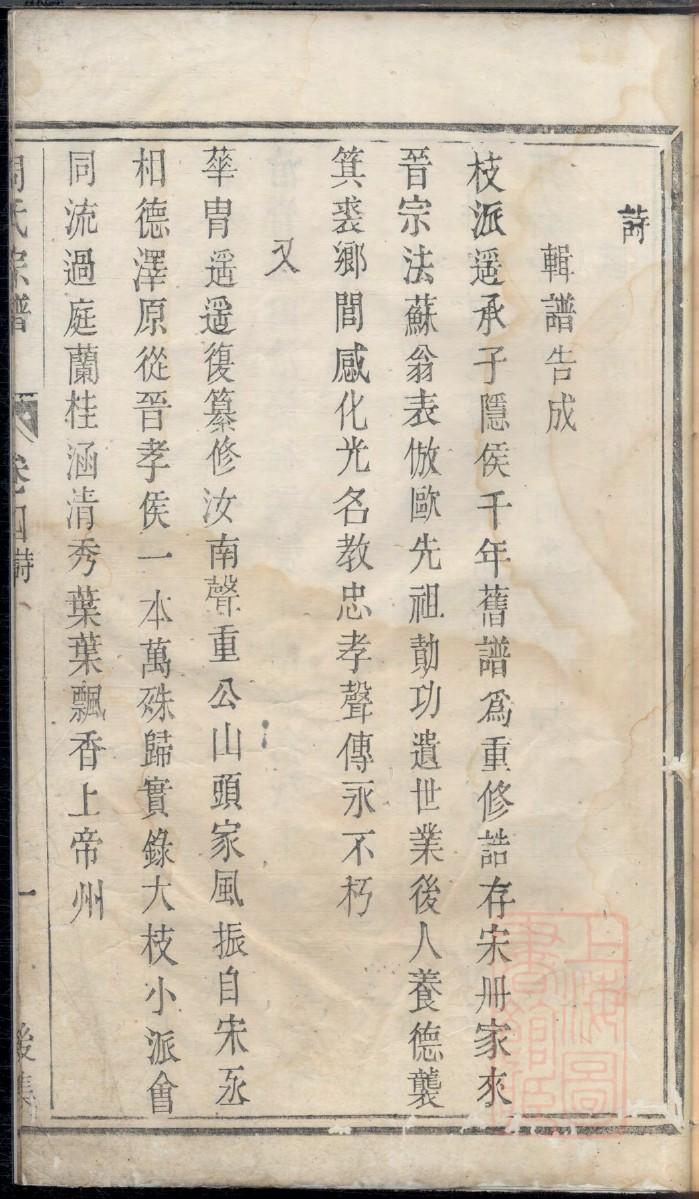 詩
輯譜告成
枝派遥承子隱侯千年舊譜爲重修誥存宋冊家來
晉宗法蘇翁表倣歐先祖勛功遺世業後人養德襲
箕裘鄉閭感化光名教忠孝聲傳永不朽
又
華胄遥遥復纂修汝南聲重公山頭家風振自宋丞
相德澤原從晉孝侯一本萬殊歸實錄大枝小派會
同流過庭蘭桂涵清秀葉葉飄香上帝州
周氏宗譜
卷四詩
一
後集
上海圖書館藏